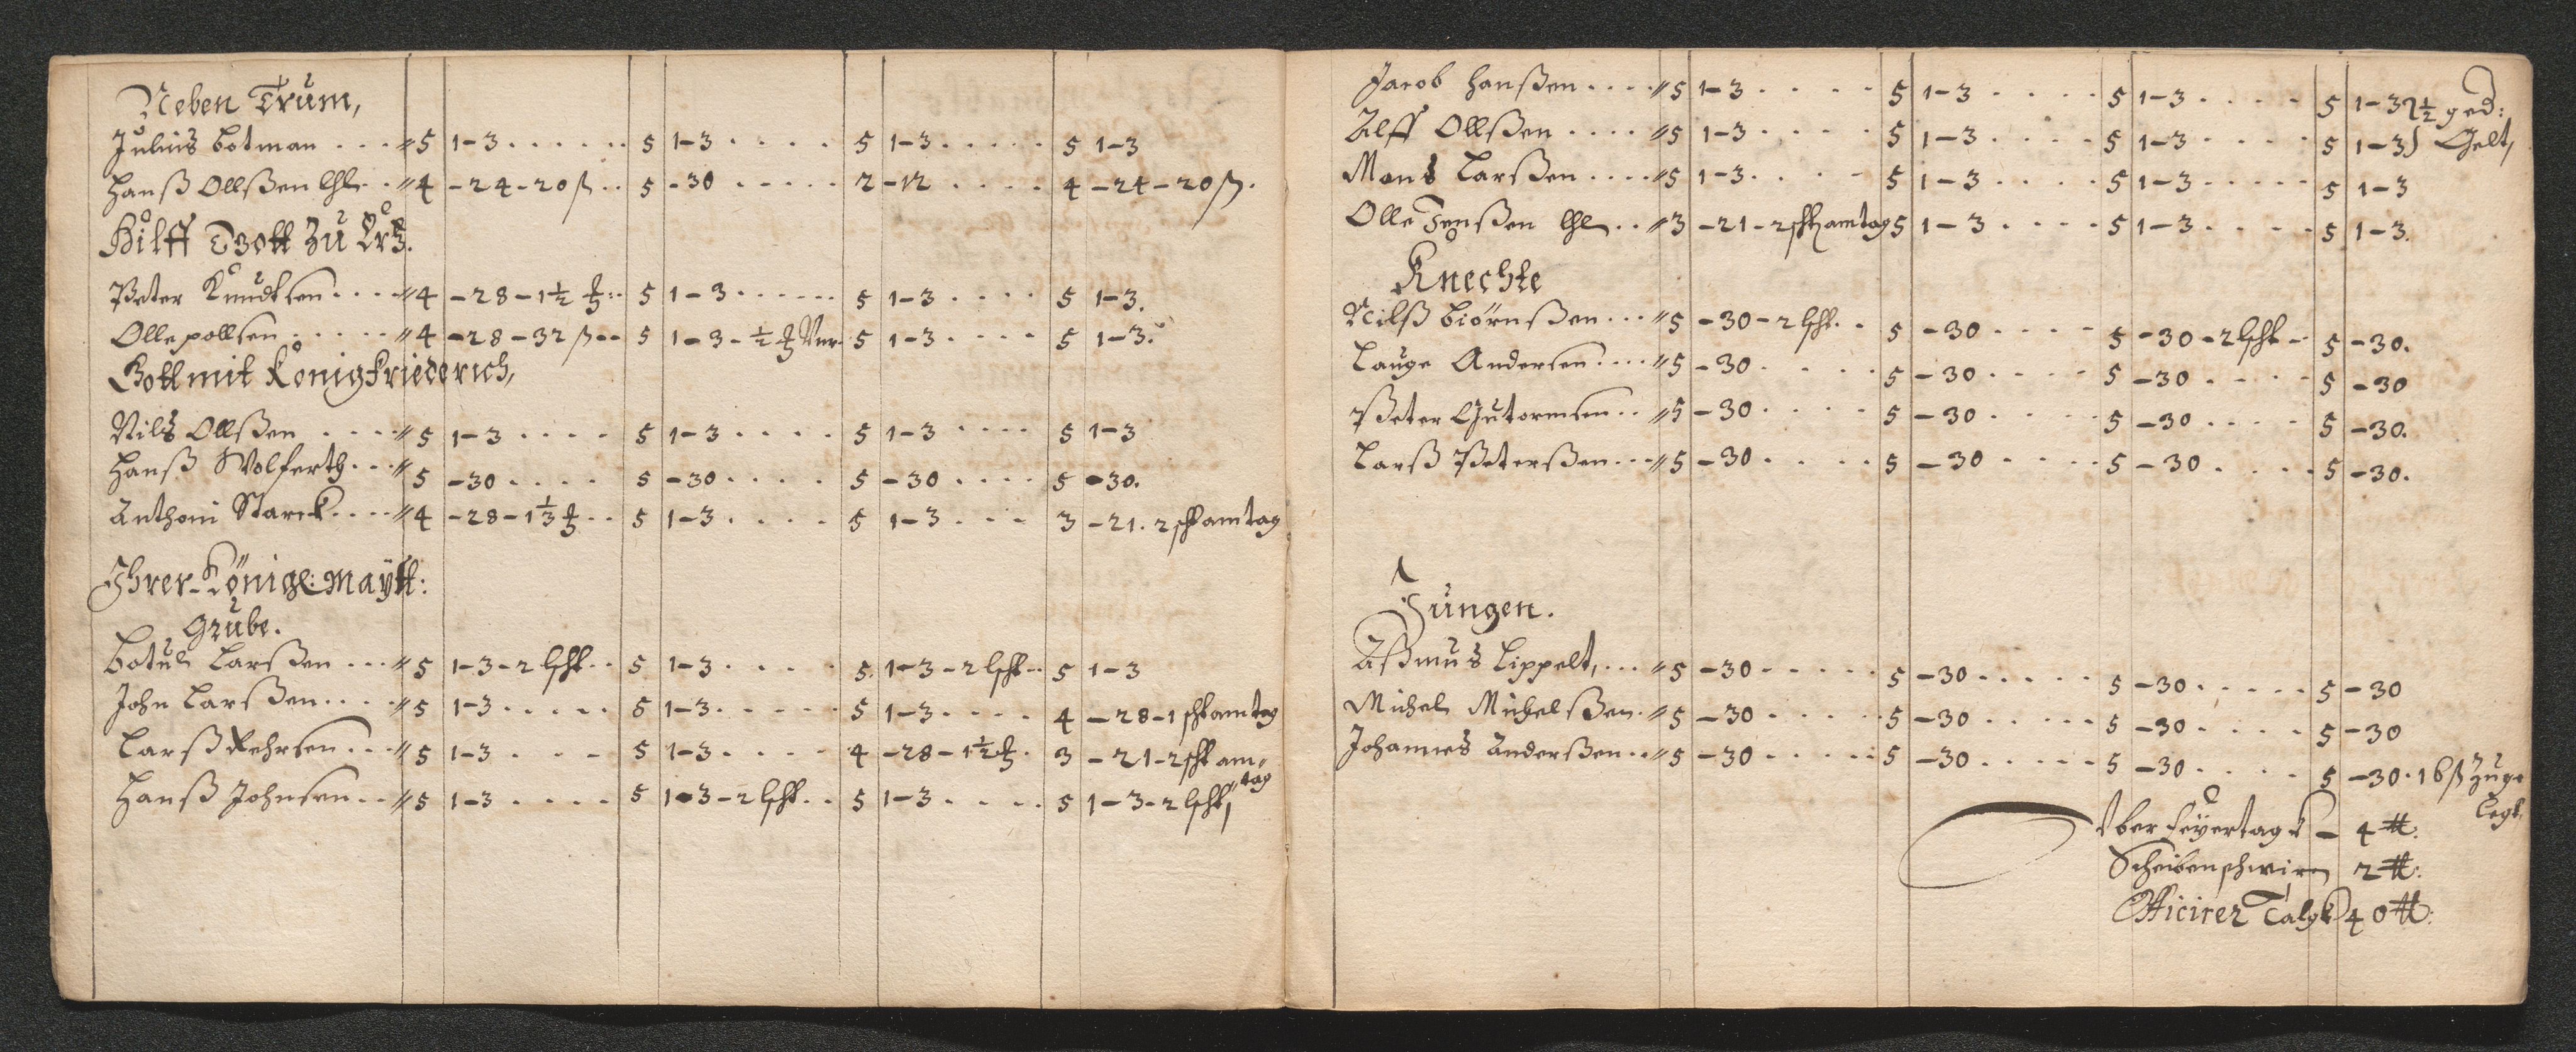 Neben Trum,
Julius botman .... // 5 1-3 ...... 5 1-3 ..... 5 1-3 ..... 5 1-3
Hanß Ollßen lhl .. // 4 -24-20 ß .. 5 -30 ..... 2 -12 .... 4 -24-20 ß.
Hilff Gott Zu Ertz.
Peter Knudtsen .... // 4 -28-1½ .. 5 1-3 ...... 5 1-3 .... 5 1-3.
Olle pollsen ..... // 4 -28-32 ß .. 5 1-3-½ 5 1-3 .... 5 1-3.
Gott mit König friederich,
Nils Ollßen .... // 5 1-3 .... 5 1-3 .... 5 1-3 .... 5 1-3
Hanß Wolferth ... // 5 -30 .... 5 -30 .... 5 -30 .... 5 -30.
Anthoni Starck .... // 4 -28-1⅓ .. 5 1-3 .... 5 1-3 ... 3 -21. 2 scht am tag
Ihrer Königl: Maytt:
Grube.
Botul Larßen ... // 5 1-3-2 lscht .. 5 1-3 .... 5. 1-3-2 lscht .. 5 1-3
John Larßen .... // 5 1-3 ..... 5 1-3 ..... 5 1-3 .... 4 -28-1 scht am tag
Larß Rehrsen ... // 5 1-3 .... 5 1-3 .... 4 -28-1½ . 3 -21-2 scht am-
tag
Hanß Johnsen .. // 5 1-3 .... 5 1-3-2 lscht .. 5 1-3 .... 5 1-3-2 lscht,
Jacob Hanßen .... // 5 1-3 .... 5 1-3 .... 5 1-3 .... 5 1-3 2½ ged:
Alff Ollßen .... // 5 1-3 .... 5 1-3 .... 5 1-3 .... 5 1-3 Gelt,
Mons Larßen .... // 5 1-3 .... 5 1-3 .... 5 1-3 ..... 5 1-3
Olle Jenßen lhl .. // 3 -21-2 scht am tag 5 1-3 .... 5 1-3 .... 5 1-3.
Knechte
Nilß Biörnßen ... // 5 -30-2 lscht .. 5 -30 .... 5 -30-2 lscht .. 5 -30.
Lauge Andersen .... // 5 -30 .... 5 -30 .... 5 -30 .... 5 -30
Peter Gutormsen .. // 5 -30 .... 5 -30 .... 5 -30 .... 5 -30.
Larß Peterßen ... // 5 -30 .... 5 -30 .... 5 -30 .... 5 -30.
Jungen.
Aßmus Lippelt, ... // 5 -30 ..... 5 -30 ..... 5 -30 ..... 5 -30
Michel Michelßen . // 5 -30 ..... 5 -30 ..... 5 -30 .... 5 -30
Johannes Anderßen .. // 5 -30 ..... 5 -30 ..... 5 -30 .... 5 -30. 16 ß Zuge
legt,
Uber feyertags - 4 ℔:
Scheibenschmirn 2 ℔:
Officirer Talgk 40 ℔: